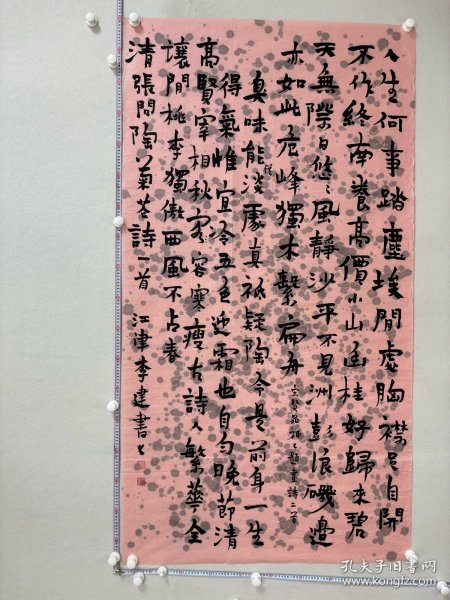 人生何事踏塵埃閒處胸襟足自開
不作終南養高價小山函桂好歸來碧
天無際日悠ミ風靜沙平不見洲彭浪磯邊
亦如此危峰獨木繫扁舟
題畫詩二首
臭味能從淡處真祇疑陶令是前身一生
得氣惟宜冷五色迎霜也自勻晚節清
高賢宰相秋容寒瘦古詩人繁華全
壤閒桃李獨傲西風不占春
清張問陶菊花詩一首 江津李建書
孔夫子旧书网
www.kongfz.com